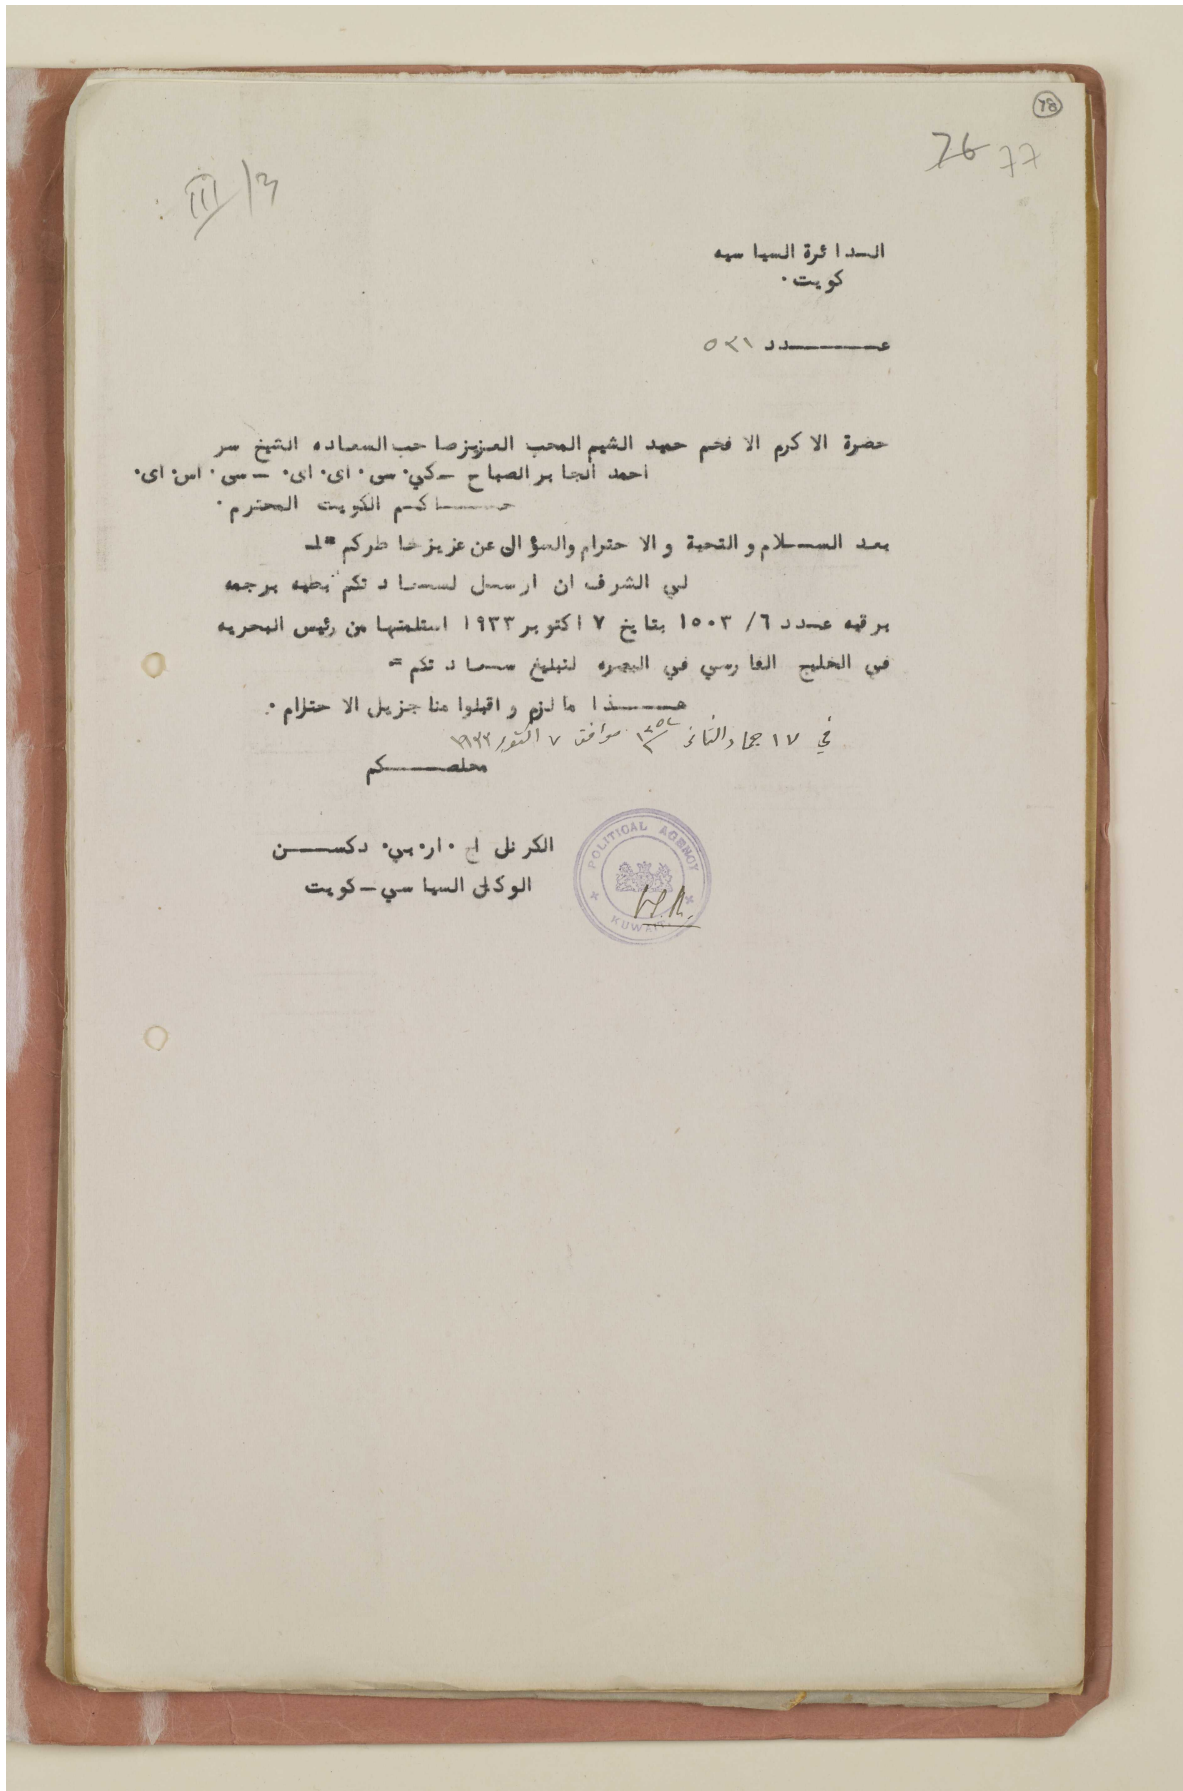 78
76 77
III/3
الدائرة السياسيه
كويت.
عـــــدد ٥٣١
حضرة الاكرم الافخم حميد الشيم المحب العزيز صاحب السعاده الشيخ سر
احمد الجابر الصباح ــ كي. سي. اي. اي. ــ سي. اس. اي.
حـــاكم الكويت المحترم.
بعد الســلام والتحية والاحترام والسؤال عن عزيز خاطركم =لـ
لي الشرف ان ارسل لسعادتكم بطيه برجمه
برقيه عدد ٦/ ١٥٠٣ بتايخ ٧ اكتوبر ١٩٣٣ استلمتها من رئيس البحريه
في الخليج الفارسي في البصره لتبليغ سعادتكم =
هـــذا مالزم واقبلوا منا جزيل الاحترام.
في ١٧ جماد الثانى ١٣٥٢ موافق ٧ اكتوبر ١٩٣٣
مخلصــكم
الكرنل اچ. ار. پي. دكســن
الوكيل السياسي ــ كويت
POLITICAL AGENCY
KUWAIT